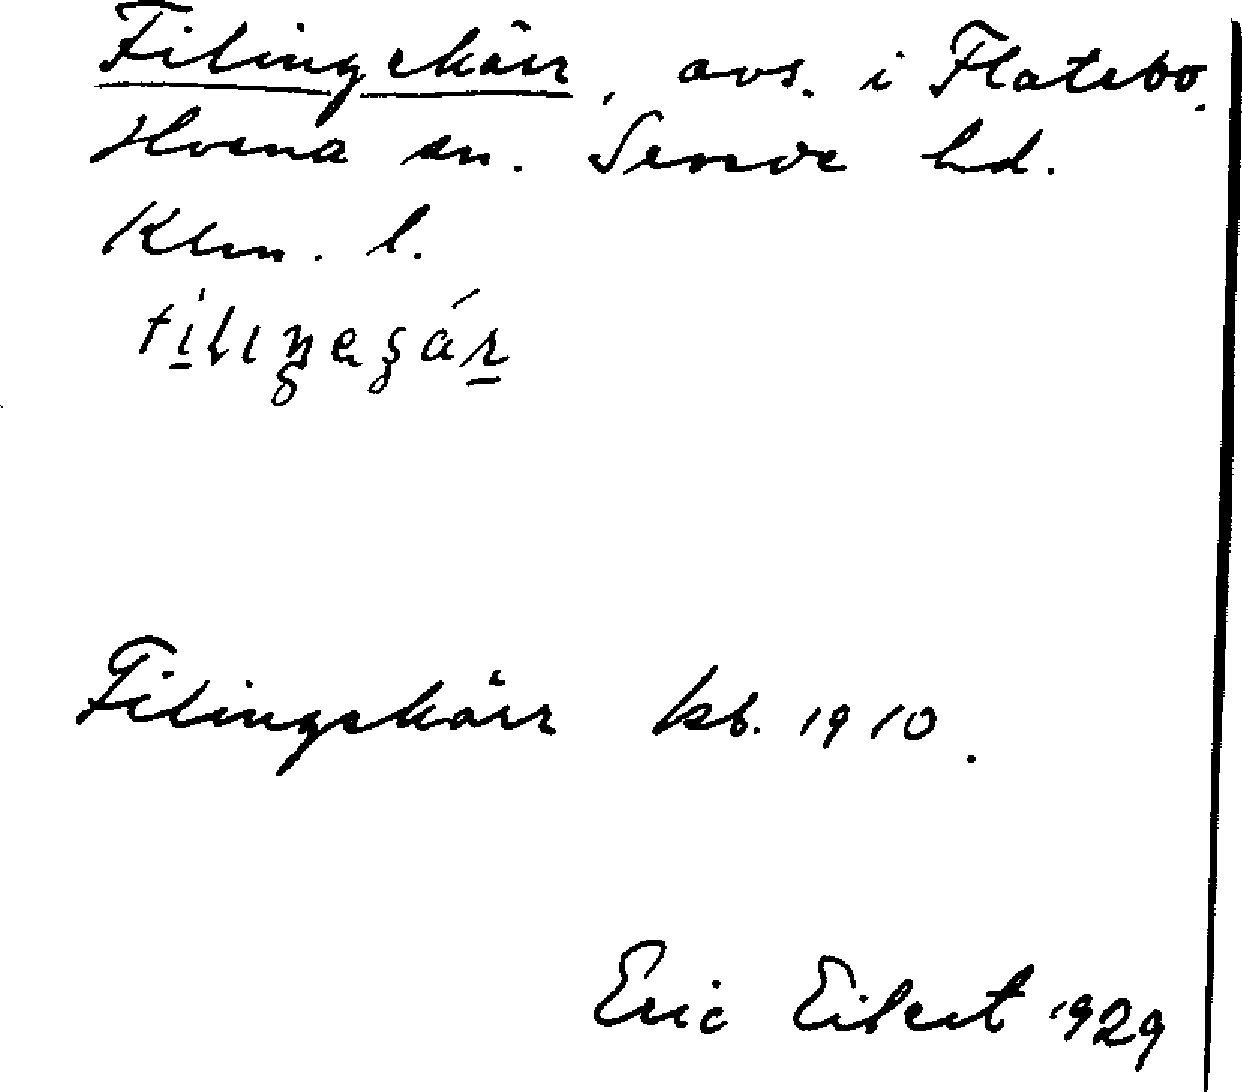 Filingskärr, avs. i Flatebo.
Hvena sn. Sevede hd.
Klm. l.
Filingskärr kb. 1910.
Eric Eibert 1929